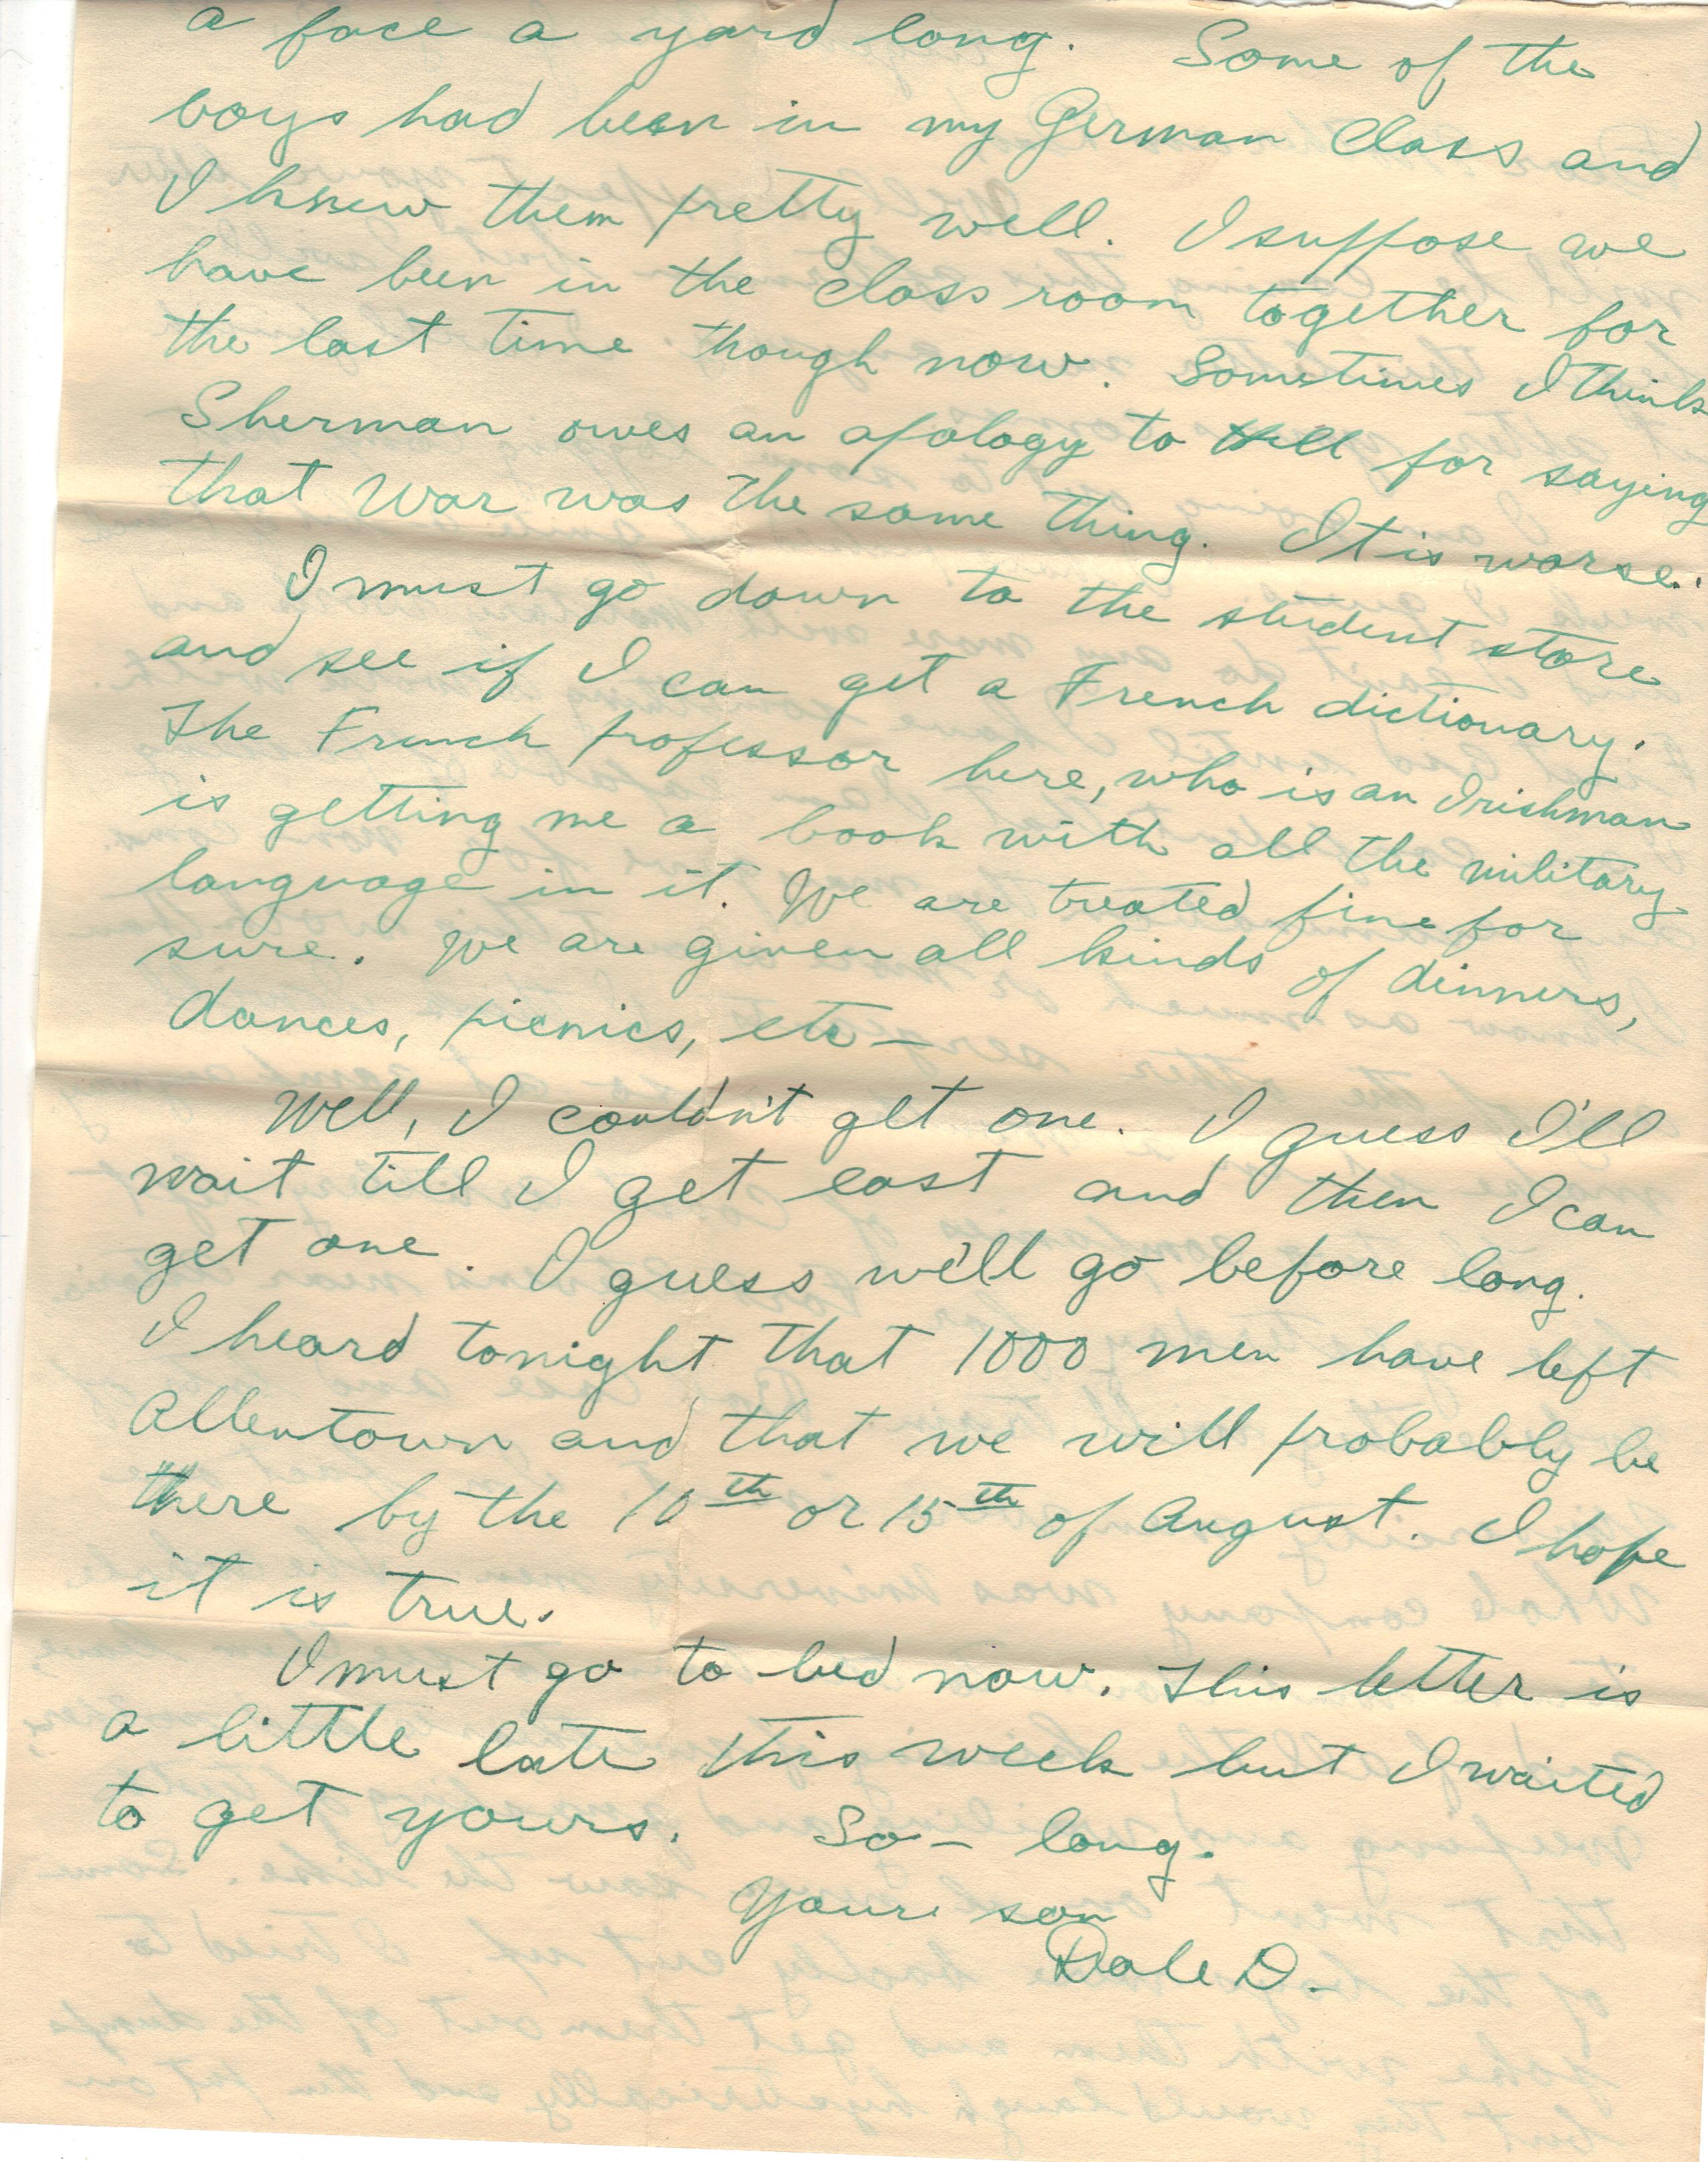 a face a yard long. Some of the
boys had been in my German class and
I knew them pretty well. I suppose we
have been in the class room together for
the last time though now. Sometimes I think
Sherman owes an apology to Hell for saying
that War was the same thing. It is worse.
I must go down to the student store
and see if I can get a French dictionary.
The French professor here, who is an Irishman
is getting me a book with all the military
language in it. We are treated fine for
sure. We are given all kinds of dinners,
dances, picnics, etc—
Well, I couldn't get one. I guess I'll
wait till I get east and then I can
get one. I guess we'll go before long.
I heard tonight that 1000 men have left
Allentown and that we will probably be
there by the 10th or 15th of August. I hope
it is true.
I must go to bed now. This letter is
a little late this week but I waited
to get yours. So-long.
Your son
Dale D.